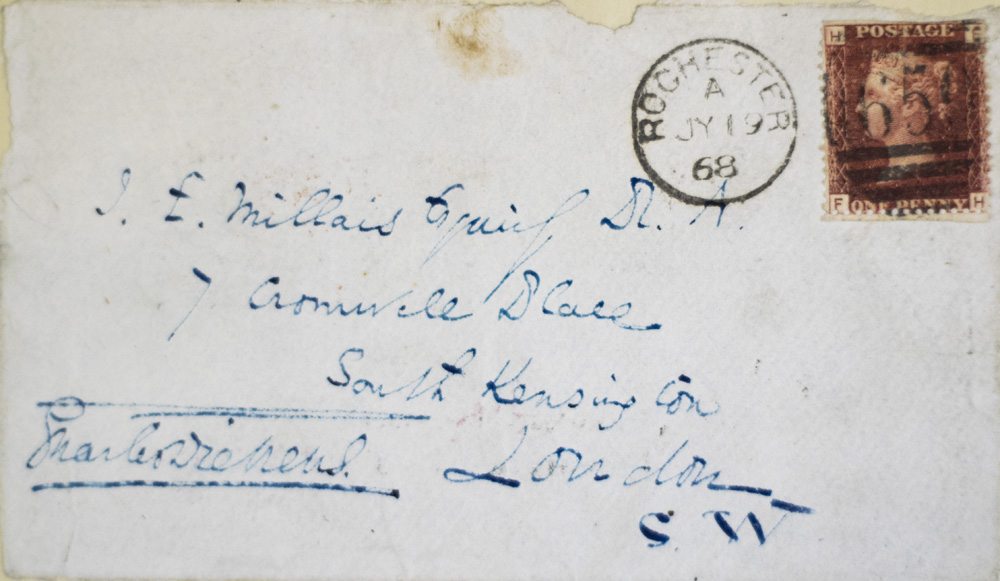 ROCHESTER
A
JY 19
68
H POSTAGE F
650
F ONE PENNY H
J. E. Millais Esquire R. A.
7 Cromwell Place
South Kensington
Charles Dickens. London
S. W